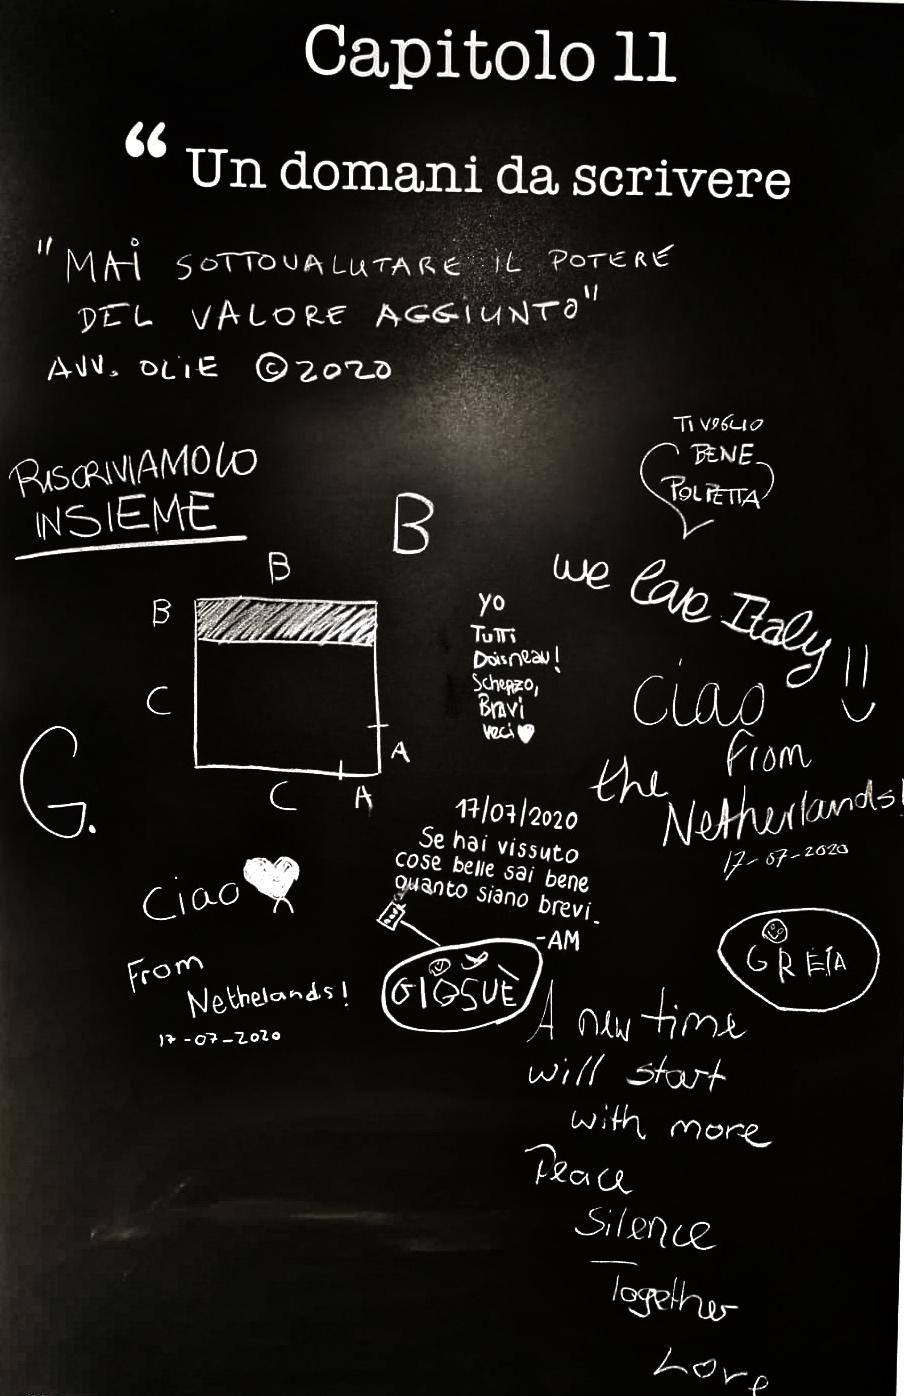 Capitolo 11
“ Un domani da scrivere
"MAi SOTTOVALUTARE IL POTERE
DEL VALORE AGGIUNTO"
AVV. OLiE ©2020
TI VOGLIO
BENE
POLPETTA
RISCRIVIAMOLO
INSIEME
B
B
B
C
A
C A
G.
yo
TuTTi
Doisneau!
Scherzo,
Bravi
veci
we love Italy !!
ciao
from
the
Netherlands!
17-07-2020
17/07/2020
Se hai vissuto
cose belle sai bene
quanto siano brevi.
-AM
Ciao
From
Nethelands!
17-07-2020
GIOSUÈ
GRETA
A new time
will start
with more
Peace
Silence
Together
Love